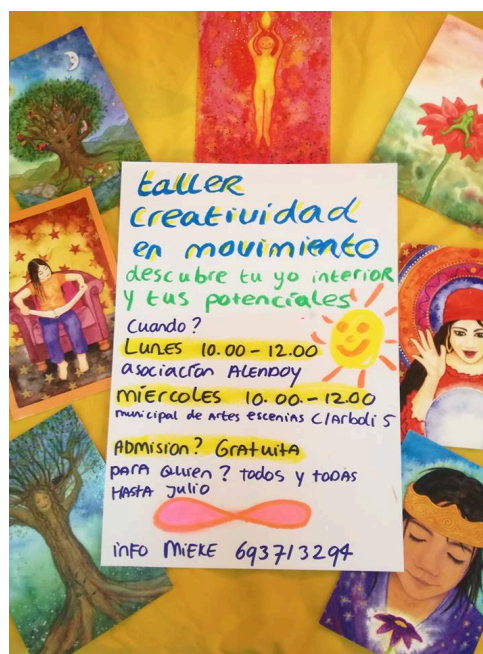 taller
creatividad
en movimiento
descubre tu yo interior
y tus potenciales
Cuando?
LUNES 10.00 - 12.00
asociación ALENDOY
miércoles 10.00. - 12.00
municipal de Artes escenias C/Arboli 5
Admision? Gratuita
para quien? todos y todas
HASTA julio
info MIEKE 693713294